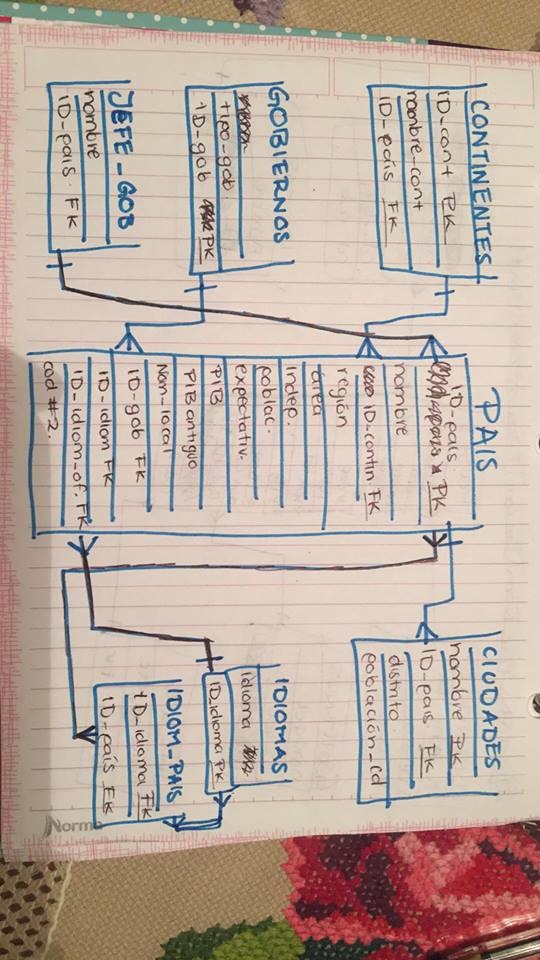 CONTINENTES
ID_cont PK
nombre_cont
ID_país FK
GOBIERNOS
tipo_gob.
ID_gob PK
JEFE_GOB
nombre
ID_país. FK
PAIS
ID_país
PK
nombre
ID_contin. FK
región
área
indep.
poblac.
expectativ.
PIB
PIB antiguo
Nom_local
ID_gob FK
ID_idiom FK
ID_idiom_of. FK
cod #2.
CIUDADES
nombre PK
ID_país FK
distrito
población_cd
IDIOMAS
idioma
ID_idioma PK
IDIOM_PAIS
ID_idioma FK
ID_país FK
Norma